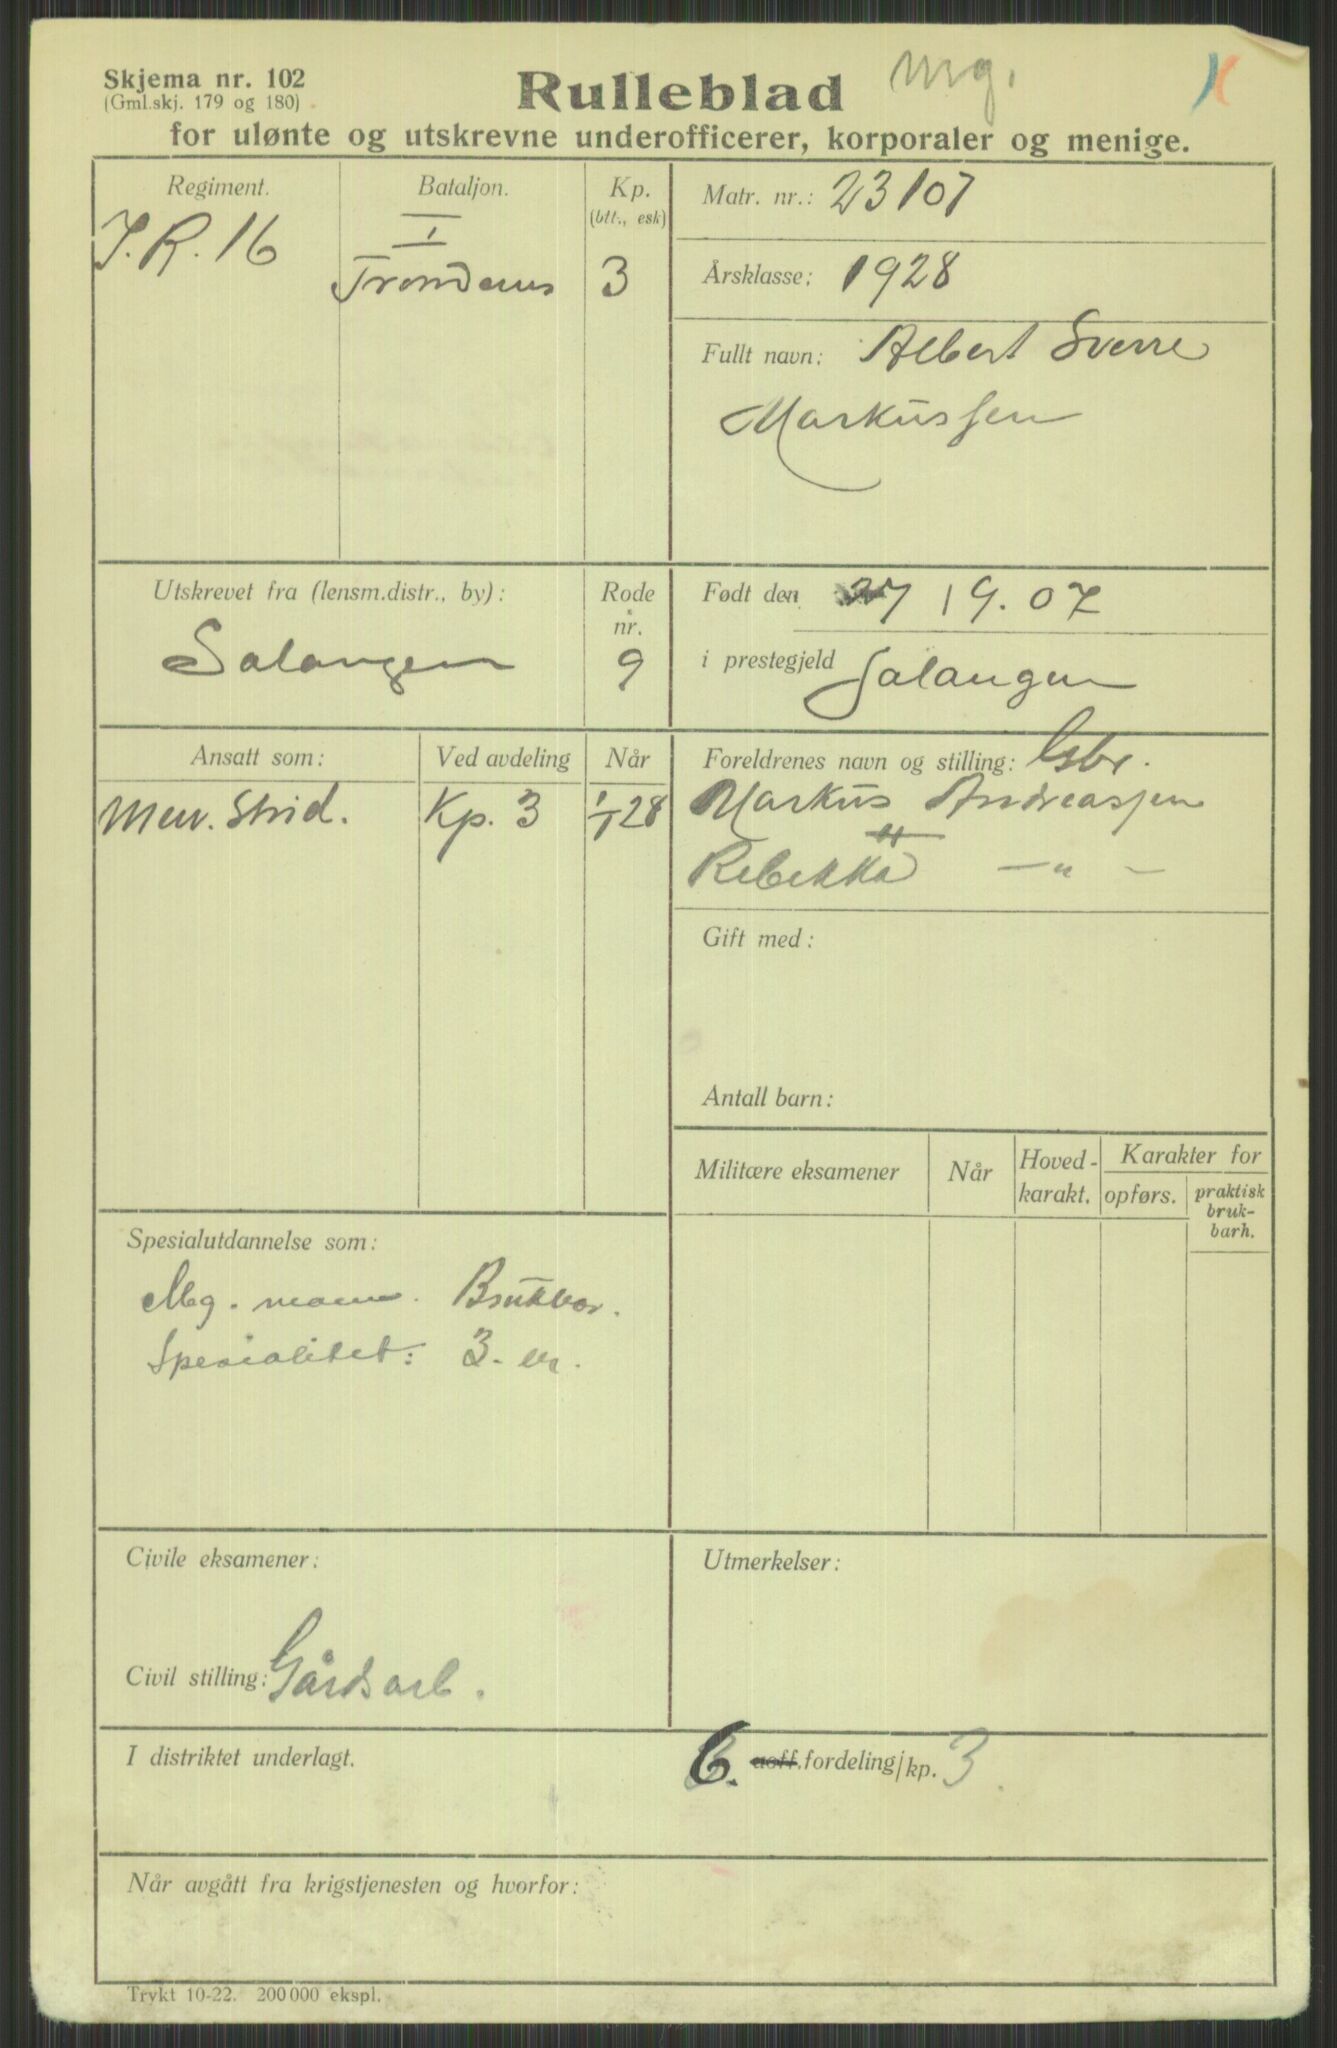 Skjema nr. 102
(Gml.skj. 179 og 180)
Rulleblad
mg.
for ulønte og utskrevne underofficerer, korporaler og menige.
Regiment.
Bataljon.
Kp.
(btt., esk)
I.R. 16
I
Trondenes
3
Matr. nr.: 23107
Årsklasse: 1928
Fullt navn: Albert Sverre
Markussen
Utskrevet fra (lensm.distr., by):
Salangen
Rode
nr.
9
Født den 19.07
i prestegjeld Salangen
Ansatt som:
Ved avdeling
Når
Men. Strid.
Kp. 3
1/1 28
Foreldrenes navn og stilling: Gsbr.
Markus Andreassen
Rebekka — " —
Gift med:
Antall barn:
Militære eksamener
Når
Hoved-
karakt.
Karakter for
opførs.
praktisk
bruk-
barh.
Spesialutdannelse som:
Mg. mann. Brukbar.
Spesialitet: 3.
Civile eksamener:
Civil stilling: Gårdsarb.
Utmerkelser:
I distriktet underlagt.
6. uoff. fordeling/kp. 3.
Når avgått fra krigstjenesten og hvorfor:
Trykt 10-22. 200 000 ekspl.